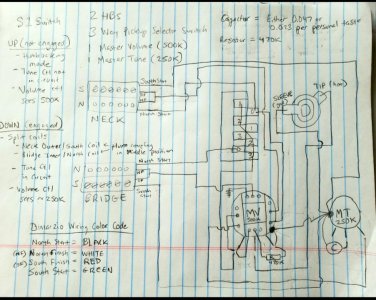 S1 Switch
2 HBS
3 Way Pickup Selector Switch
1 Master Volume (500K)
1 Master Tone (250K)
Capacitor = Either 0.047 or
0.033 per personal taste
Resistor = 470K
UP (not engaged)
- Humbucking
mode
- Tone Ctl not
in circuit
- Volume ctl
sees 500K
DOWN (engaged)
- Split coils
- Neck Outer/South Coil
- Bridge Inner/North Coil
in middle position
- Tone Ctl
in circuit
- Volume ctl
sees ~250K
South Start
S
N
North Start
NECK
North Start
N
S
South Start
BRIDGE
SLEEVE
TIP (hot)
MV
500K
470K
MT
250K
C
DiMarzio Wiring Color Code
North Start = BLACK
North Finish = WHITE
South Finish = RED
South Start = GREEN